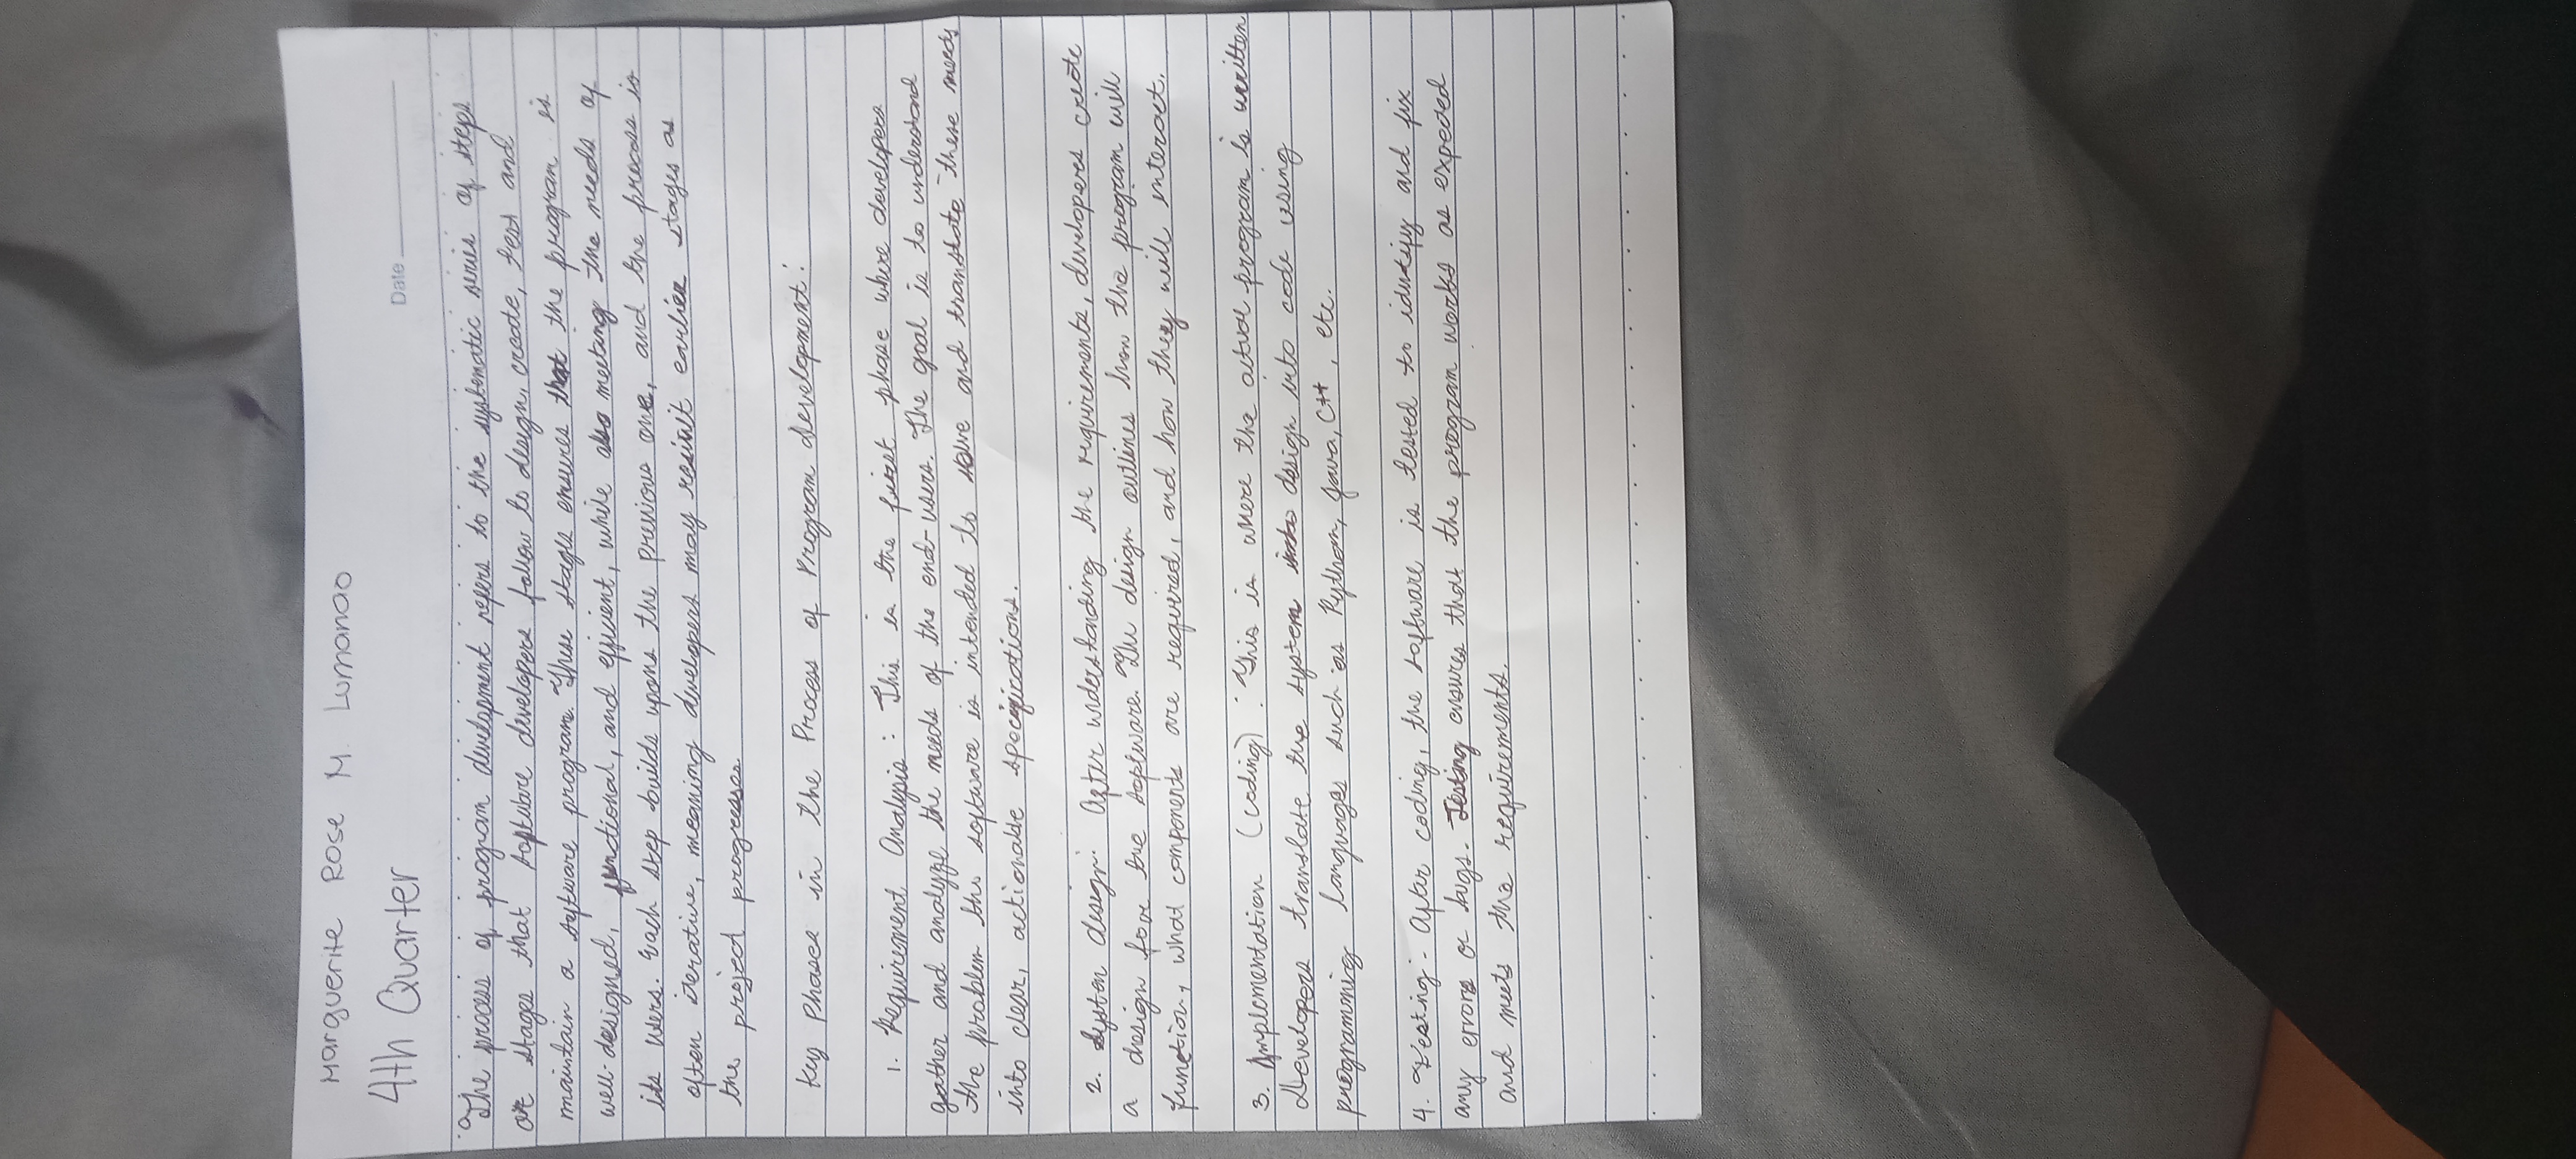 Marguerite Rose M. Lumanao
4th Quarter
Date
The process of program development refers to the systematic series of steps
or stages that software developers follow to design, create, test and
maintain a software program. These stages ensures that the program is
well-designed, functional, and efficient, while also meeting the needs of
its users. Each step builds upons the previous one, and the process is
often iterative, meaning developers may revisit earlier stages as
the project progresses.
Key Phases in the Process of Program development:
1. Requirement Analysis: This is the first phase where developers
gather and analyze the needs of the end-users. The goal is to understand
the problem the software is intended to solve and translate these needs
into clear, actionable specifications.
2. System design: After understanding the requirements, developers create
a design for the software. The design outlines how the program will
function, what components are required, and how they will interact.
3. Implementation (coding): This is where the actual program is written
Developers translate the system into design into code using
programming languages such as Python, Java, C++, etc.
4. Testing - After coding, the software is tested to identify and fix
any errors or bugs. Testing ensures that the program works as expected
and meets the requirements.